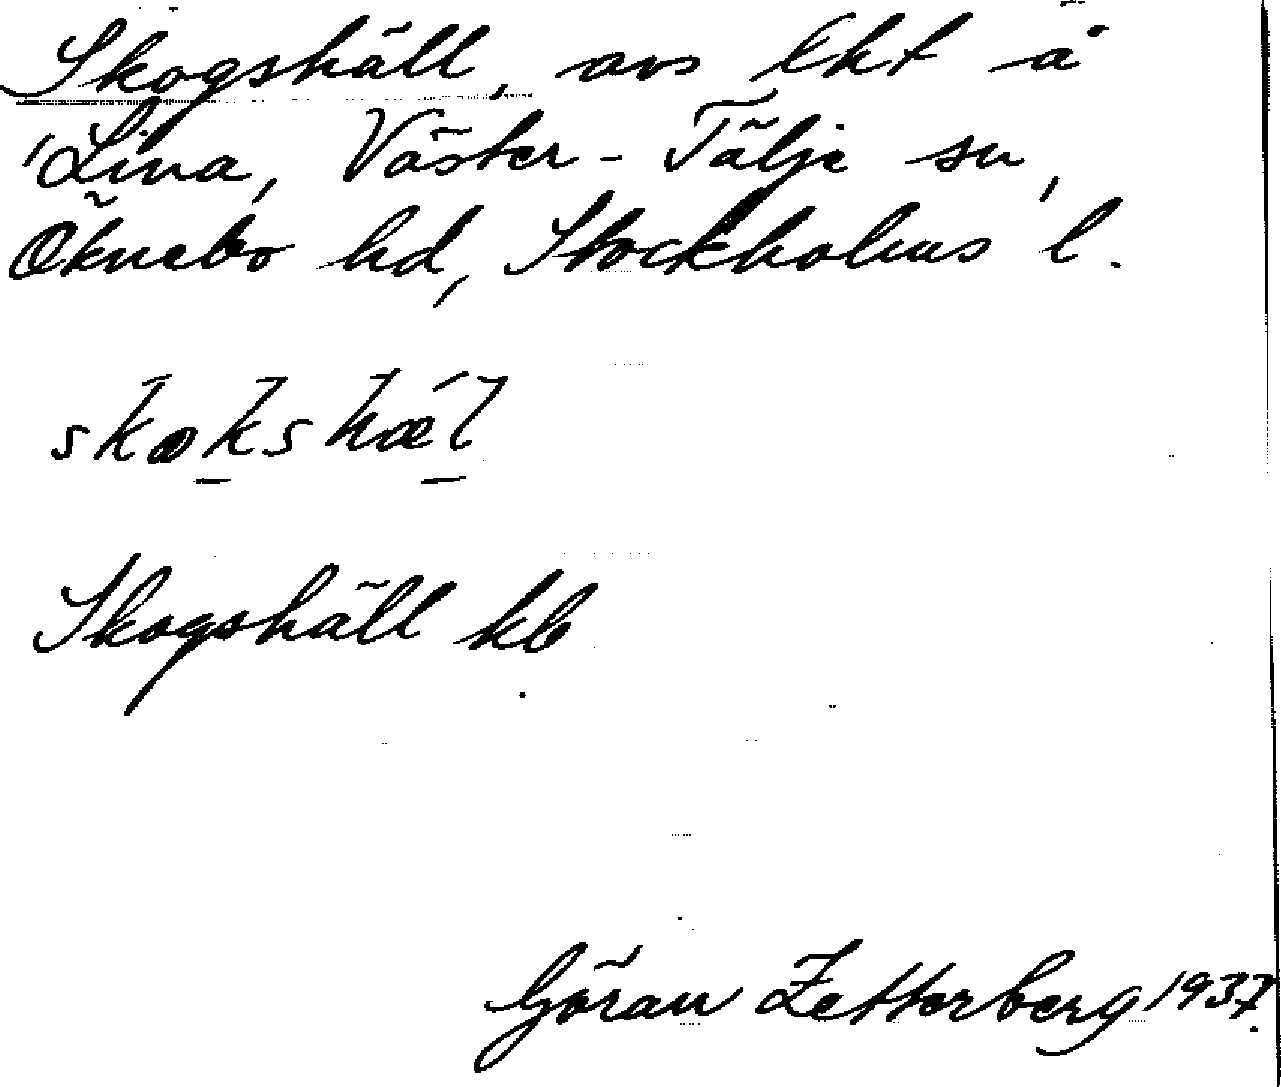 Skogshäll, avs lht å
Lina, Väster-Tälje sn,
Öknebo hd, Stockholms l.
Skogshäll kb
Göran Zetterberg 1937.